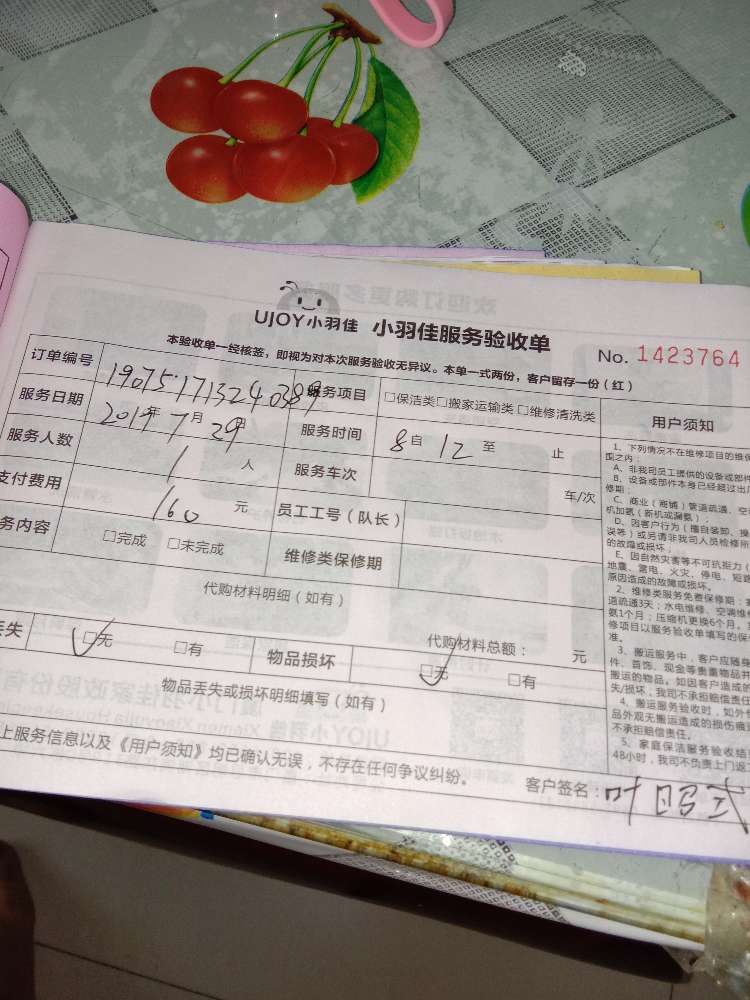 UJOY小羽佳 小羽佳服务验收单
No. 1423764
本验收单一经核签，即视为对本次服务验收无异议。本单一式两份，客户留存一份（红）
订单编号 服务项目 □保洁类□搬家运输类□维修清洗类
服务日期 2019年7月29日 服务时间 8自12至 止
服务人数 1人 服务车次 车/次
支付费用 160元 员工工号（队长）
务内容 □完成 □未完成 维修类保修期
代购材料明细（如有）
代购材料总额： 元
丢失 □无 □有 物品损坏 □无 □有
物品丢失或损坏明细填写（如有）
上服务信息以及《用户须知》均已确认无误，不存在任何争议纠纷。
客户签名：叶昭式
用户须知
1、下列情况不在维修项目的维保
围之内：
A、非我司员工提供的设备或部件
B、设备或部件本身已经超过出厂
修期；
C、商业（商铺）管道疏通、空
机加氨（新机或漏氨）
D、因客户行为（擅自装卸、操
误等）或另请非我司人员检修所
的故障或损坏；
E、因自然灾害等不可抗拒力（
地震、雷电、火灾、停电、短路
原因造成的故障或损坏。
2、维修类服务免费保修期：
道疏通3天；水电维修、空调维
氨1个月；压缩机更换6个月。
修项目以服务验收单填写的保
准。
3、搬运服务中，客户应随身
件、首饰、现金等贵重物品并
搬运的物品。如因客户造成的
失/损坏，我司不承担赔偿责任
4、搬运服务验收时，如外包
品外观无搬运造成的损伤痕
不承担赔偿责任。
5、家庭保洁服务验收结
48小时，我司不负责上门返